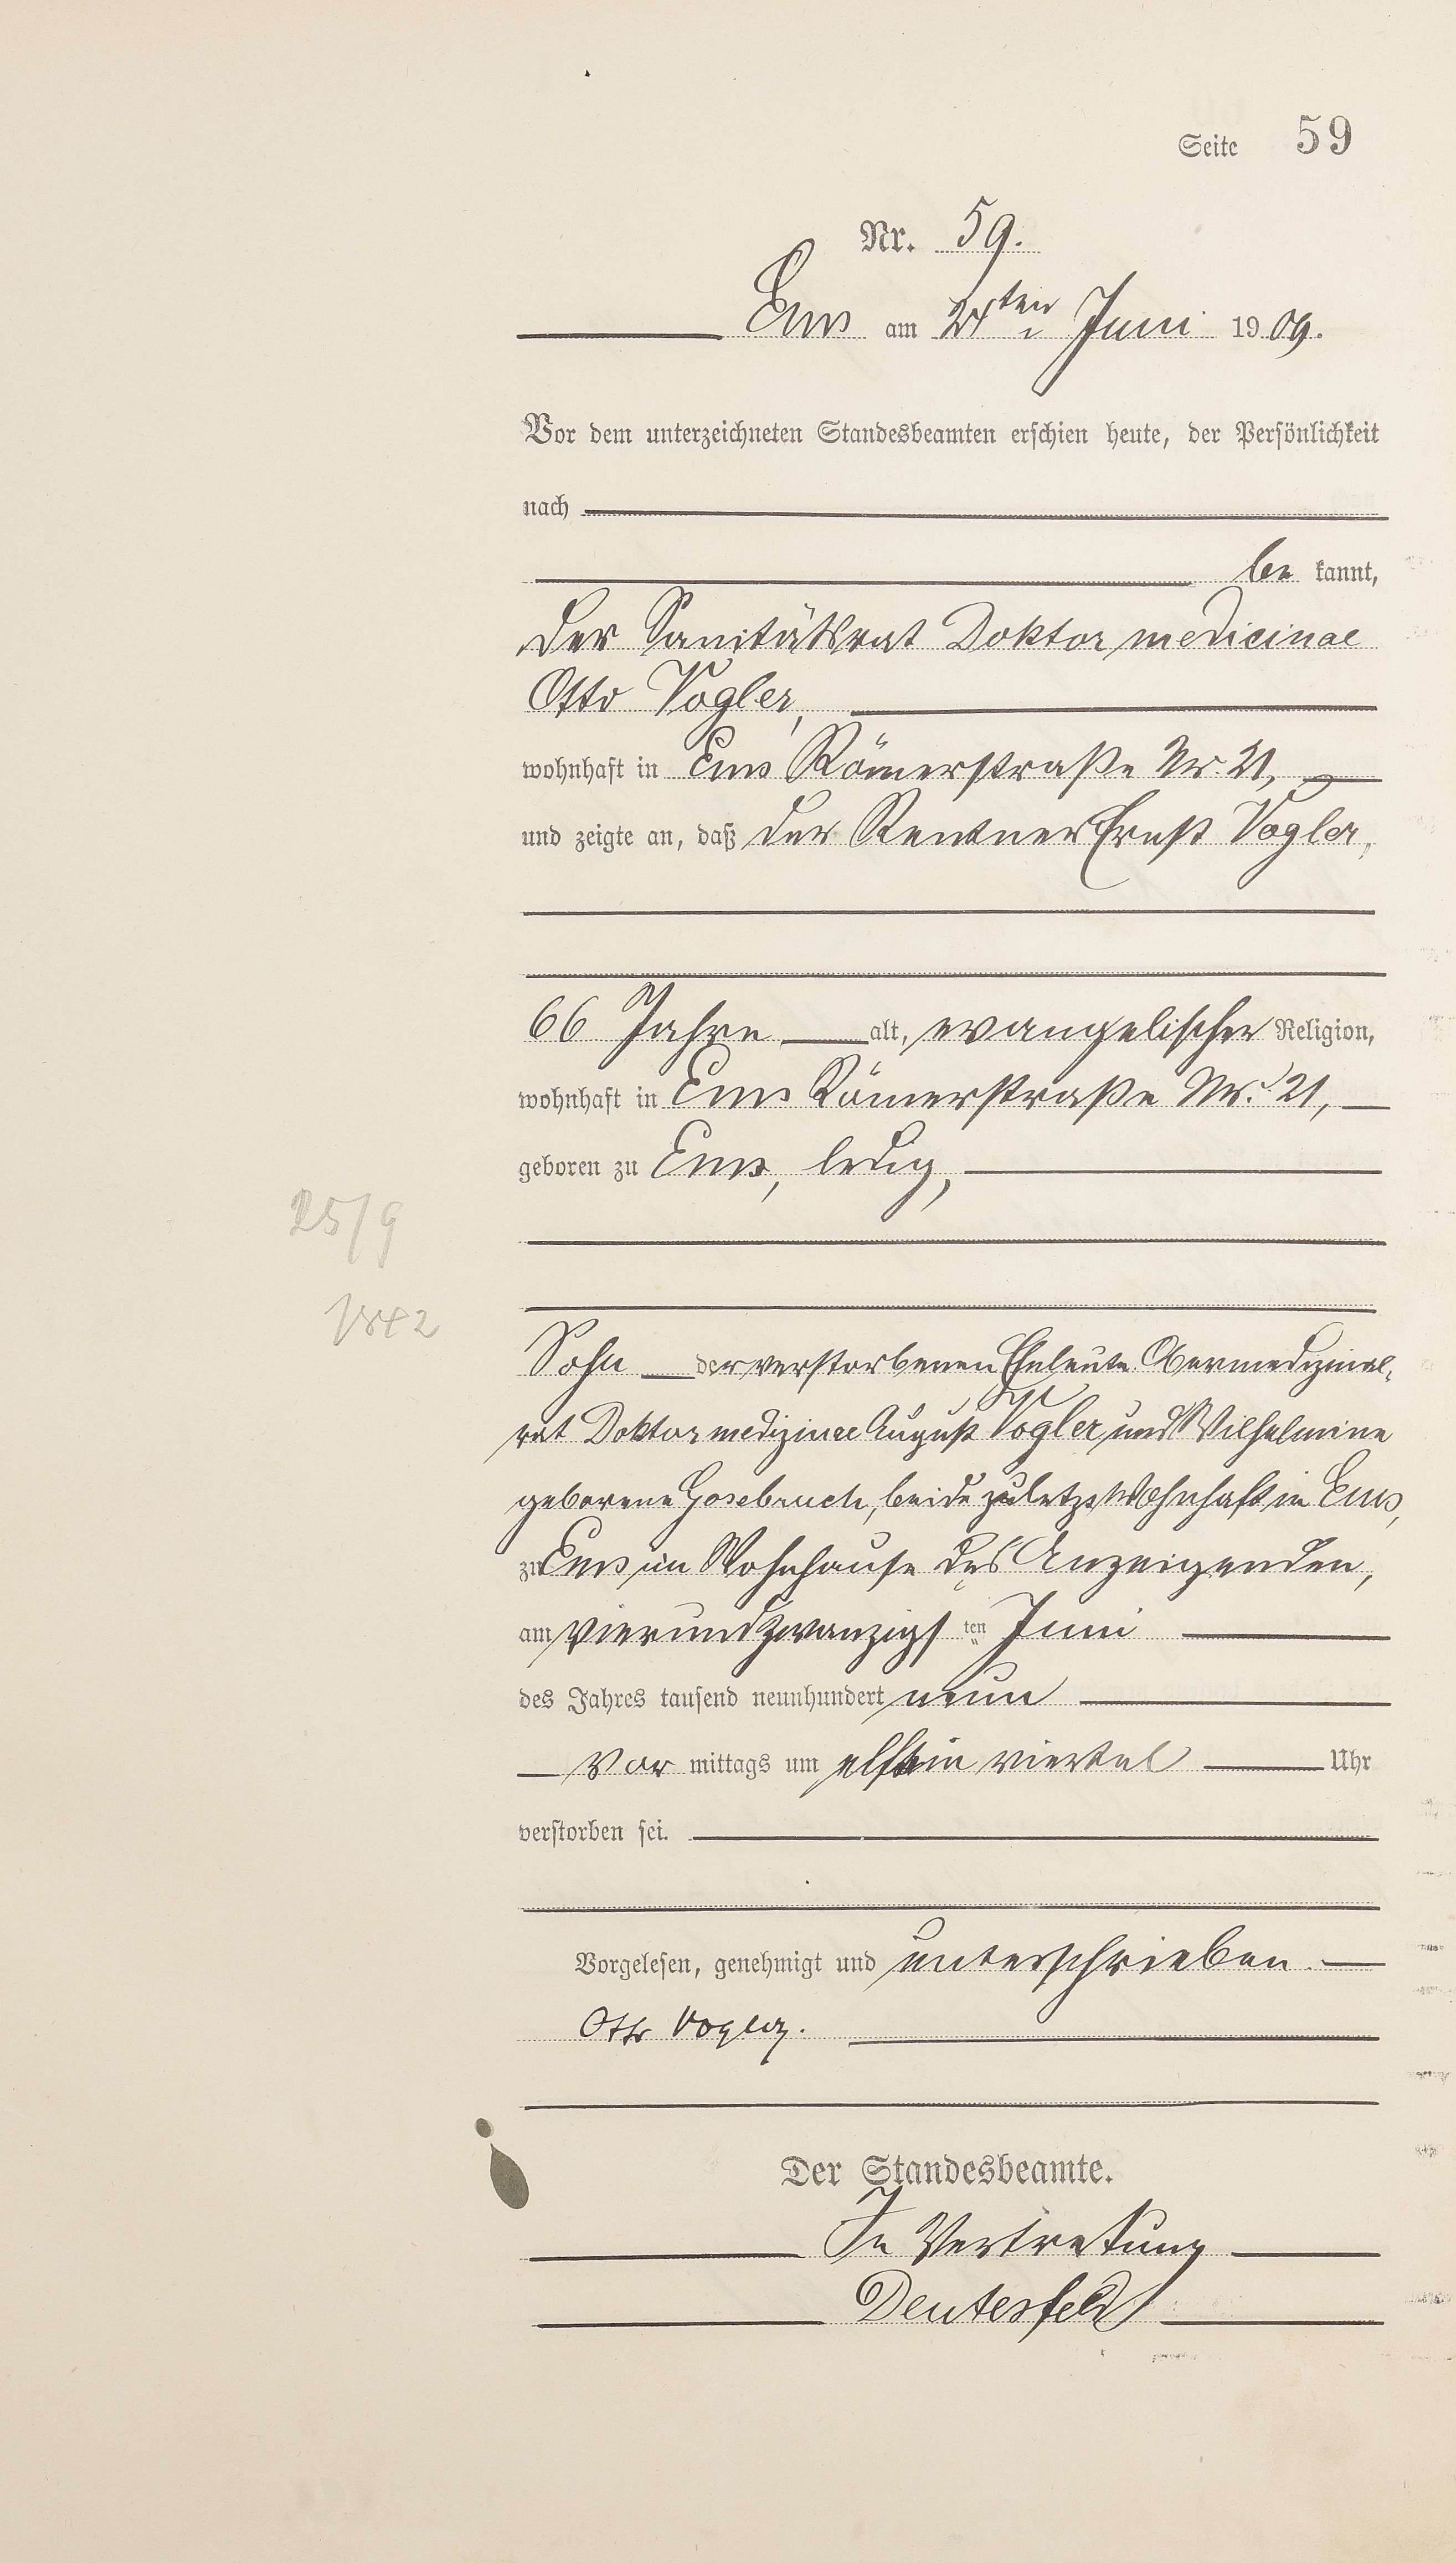 Seite 59
Nr. 59.
Ems am 24ten Juni 1909.
Vor dem unterzeichneten Standesbeamten erschien heute, der Persönlichkeit
nach
be kannt,
der Sanitätsrat Doktor medicinae
Otto Vogler,
wohnhaft in Ems Römerstraße Nr. 21,
und zeigte an, daß der Rentner Ernst Vogler,
66 Jahre alt, evangelischer Religion,
wohnhaft in Ems Römerstraße Nr. 21,
geboren zu Ems, ledig,
25/9
1842
Sohn der verstorbenen Eheleute Obermedizinal-
rat Doktor medizinae August Vogler und Wilhelmine
geborene Gosebruch, beide zuletzt wohnhaft in Ems,
zu Ems im Wohnhause des Anzeigenden,
am vierundzwanzigsten Juni
des Jahres tausend neunhundert neun
Vor mittags um elf ein viertel Uhr
verstorben sei.
Vorgelesen, genehmigt und unterschrieben.
Otto Vogler.
Der Standesbeamte.
In Vertretung
Deutesfeld